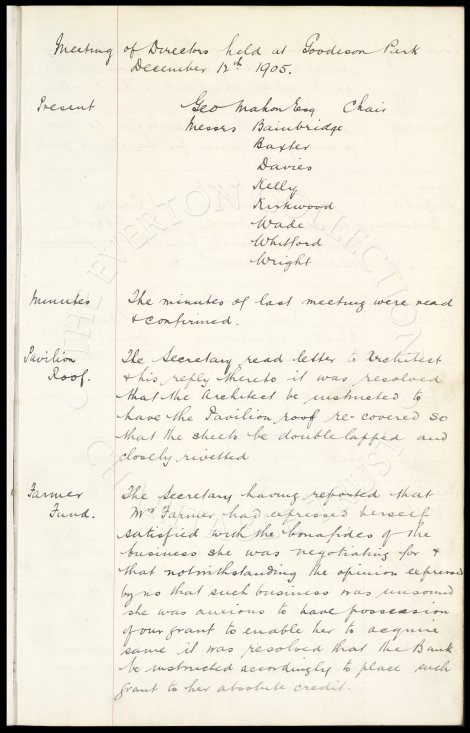 Meeting of Directors held at Goodison Park
December 12th 1905.
Present Geo Mahon Esq Chair
Messrs Bainbridge
Baxter
Davies
Kelly
Kirkwood
Wade
Whitford
Wright
Minutes The minutes of last meeting were read
& confirmed.
Pavilion The Secretary read letter to Architect
Roof. & his reply thereto it was resolved
that the Architect be instructed to
have the Pavilion roof re-covered so
that the sheets be double lapped and
closely rivetted
Farmer The Secretary having reported that
Fund. Mrs Farmer had expressed herself
satisfied with the bonafides of the
business she was negotiating for &
that notwithstanding the opinion expressed
by us that such business was unsound
she was anxious to have possession
of our grant to enable her to acquire
same it was resolved that the Bank
be instructed accordingly to place such
grant to her absolute credit.
THE EVERTON COLLECTION
CHARITABLE TRUST